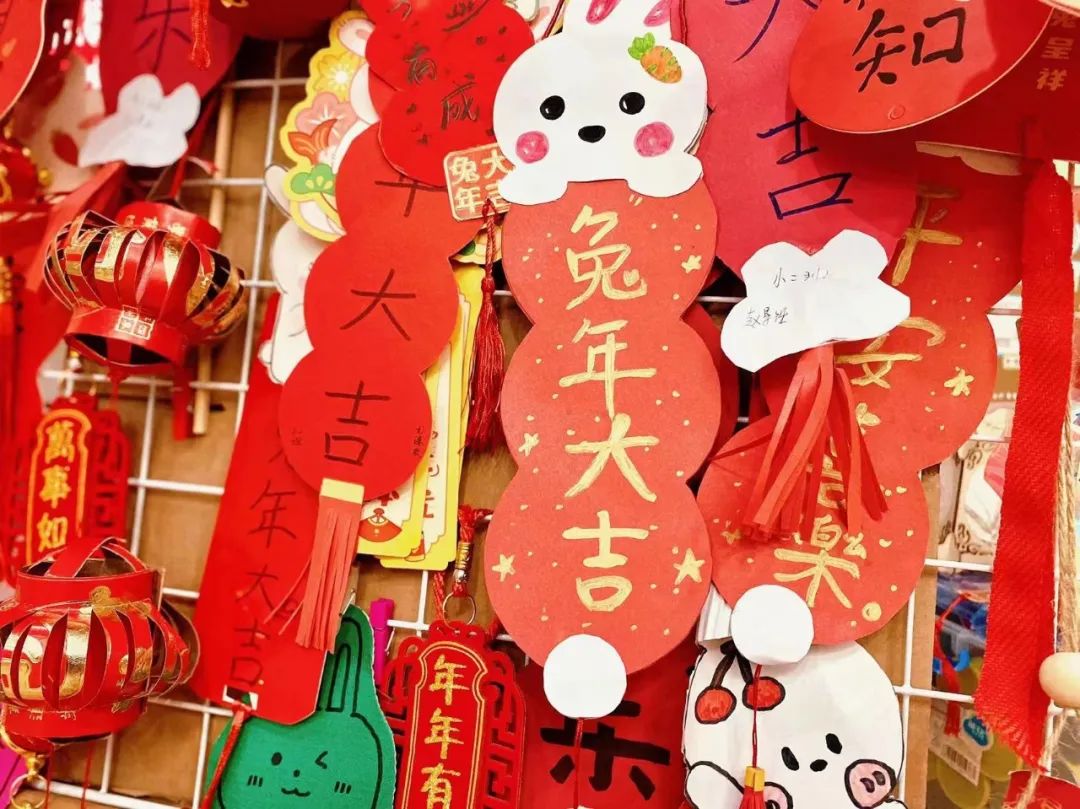 知
呈祥
吉
大吉
兔年
兔年大吉
大吉
平安
喜乐
小二
萬事如
年大吉
年年有
乐